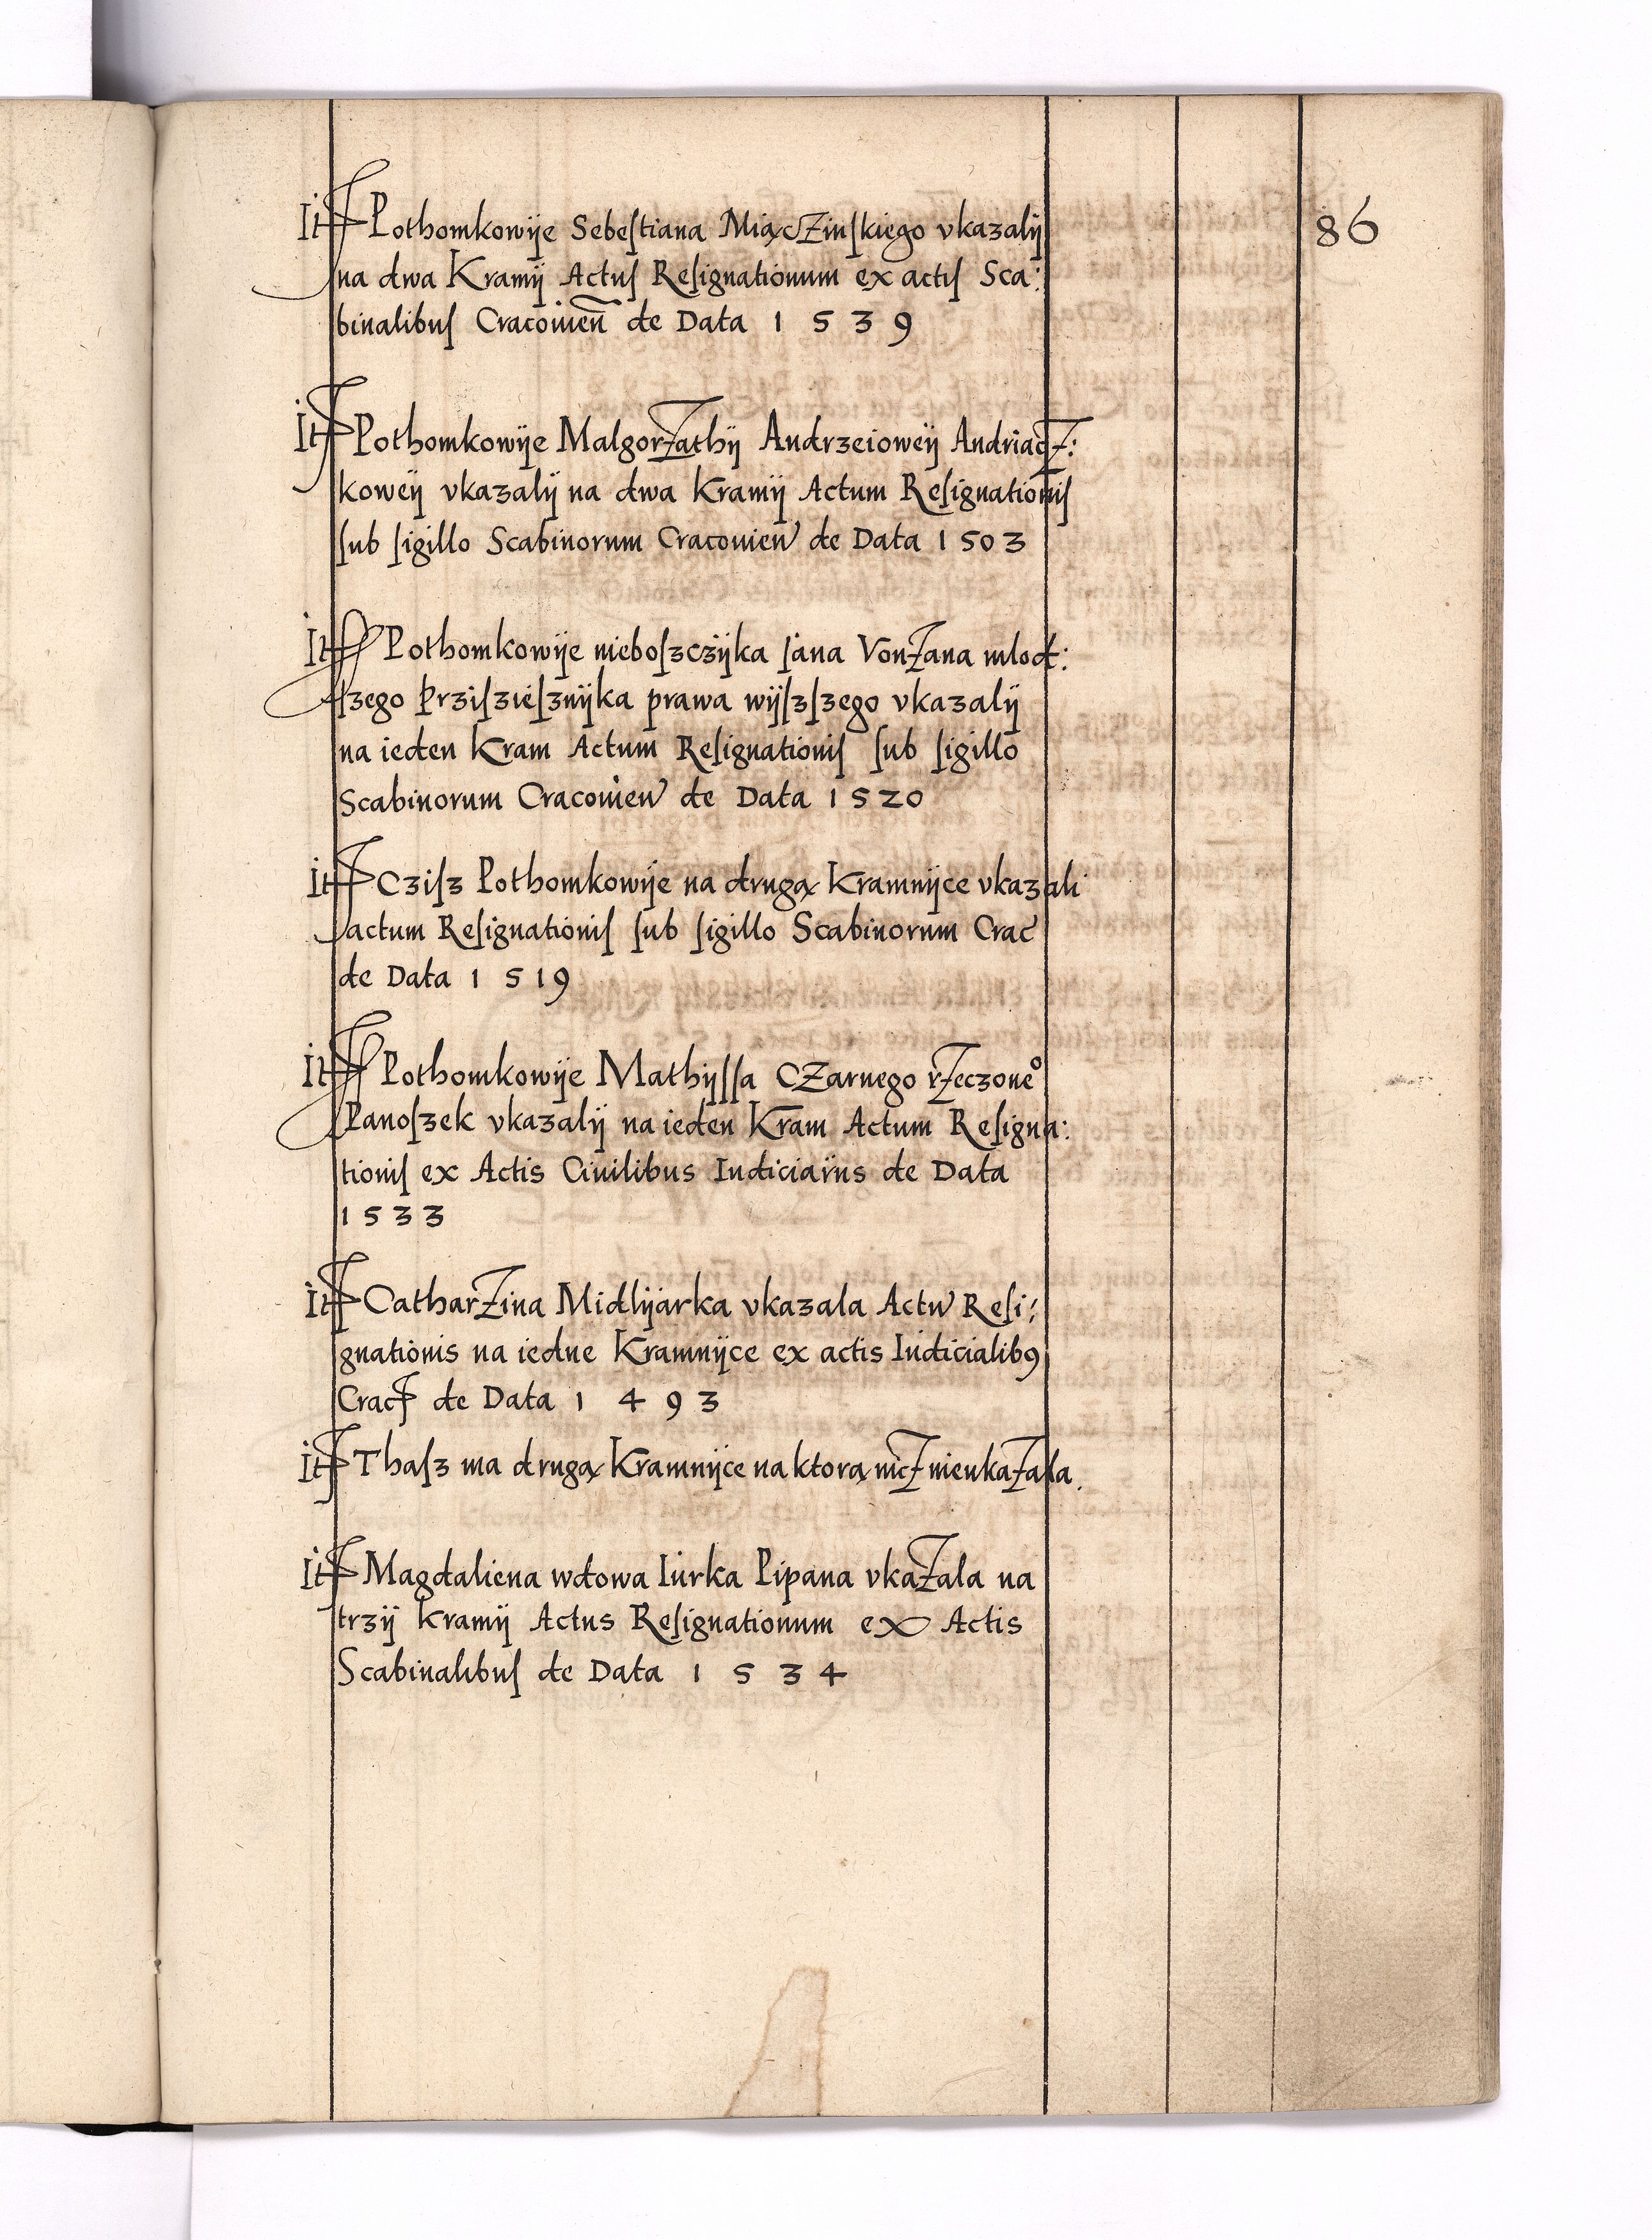 86
It Pothomkowÿe Sebeſtiana Miączinſkiego vkazalÿ
na dwa Kramÿ Actuſ Reſignationum ex actiſ Sca:
binalibuſ Cracouień de Data 1539
It Pothomkowÿe Malgorzathÿ Andrzeioweÿ Andriacz:
koweÿ vkazalÿ na dwa Kramÿ Actum Reſignationiſ
ſub ſigillo Scabinorum Cracouien de Data 1503
It Pothomkowÿe nieboſzczÿka Jana Vonzana mlod:
ſzego Przÿſzieſznÿka prawa wÿſzſzego vkazalÿ
na ieden Kram Actum Reſignationiſ ſub ſigillo
Scabinorum Cracouien de Data 1520
It Cziſz Pothomkowÿe na drugą Kramnÿce vkazali
actum Reſignationiſ ſub ſigillo Scabinorum Crac
de Data 1519
It Pothomkowÿe Mathÿſſa Czarnego rzeczone°
Panoſzek vkazalÿ na ieden Kram Actum Reſigna:
tioniſ ex Actis Ciuilibus Iudiciariis de Data
1533
It Catharzina Midlÿarka vkazala Actu Reſi:
gnationis na iedne Kramnÿce ex actis Iudicialib9
Crac de Data 1493
It Thaſz ma drugą Kramnÿce na ktorą nicz nieukazala.
It Magdaliena wdowa Iurka Pipana vkazala na
trzÿ kramÿ Actus Reſignationum ex Actis
Scabinalibuſ de Data 1534